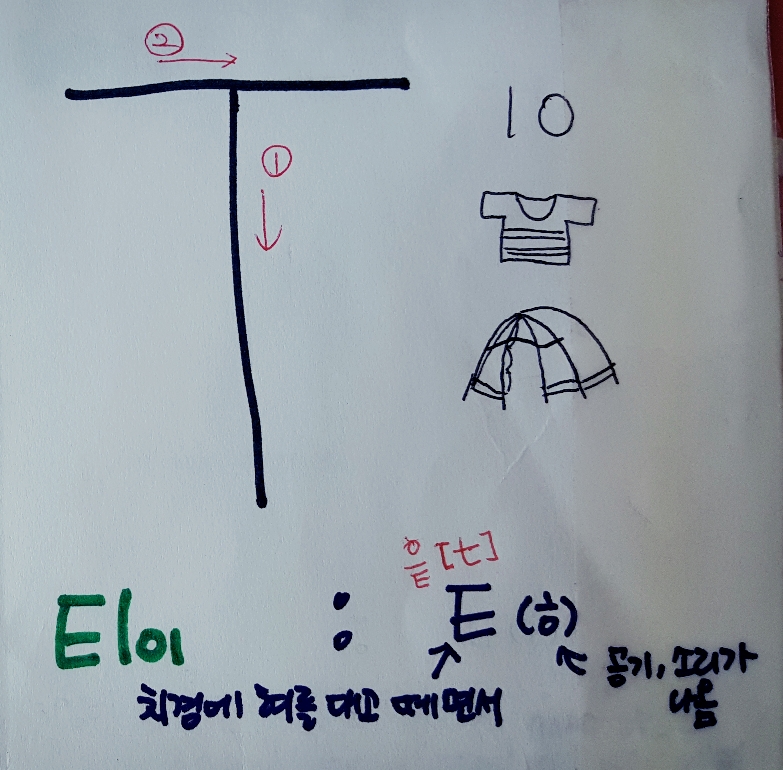 ②
T
①
10
읕 [t]
티이 : ㅌ (ㅎ)
치경에 혀를 대고 떼면서
공기, 소리가
나옴